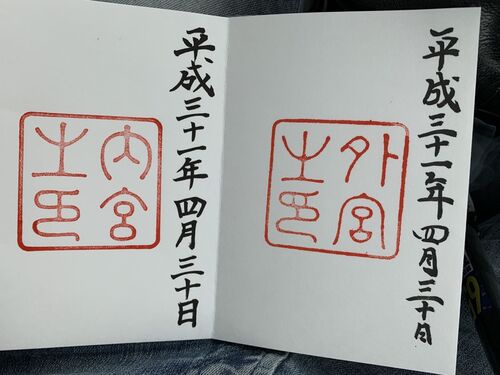 平成三十一年四月三十日
外宮
之印
平成三十一年四月三十日
内宮
之印